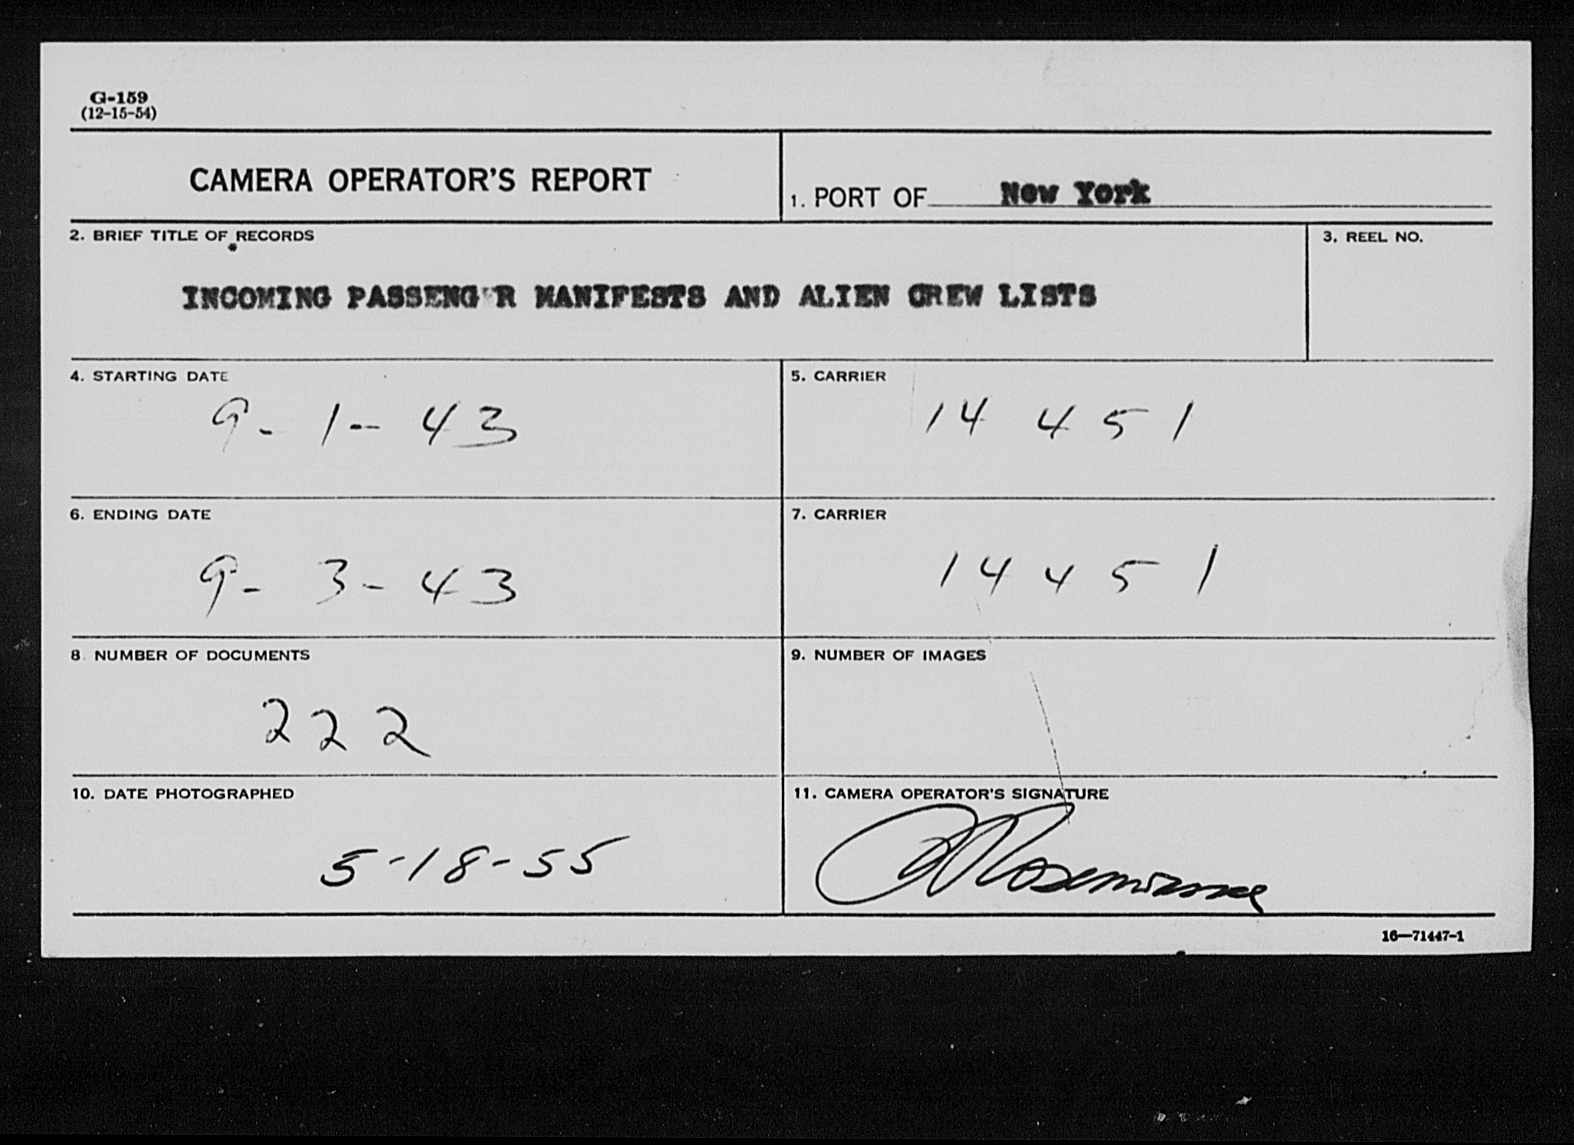 G-159
(12-15-54)
CAMERA OPERATOR'S REPORT
1. PORT OF New York
2. BRIEF TITLE OF RECORDS
3. REEL NO.
INCOMING PASSENG R MANIFESTS AND ALIEN CREW LISTS
4. STARTING DATE
5. CARRIER
9-1-43
14 451
6. ENDING DATE
7. CARRIER
9-3-43
14451
8. NUMBER OF DOCUMENTS
9. NUMBER OF IMAGES
222
10. DATE PHOTOGRAPHED
11. CAMERA OPERATOR'S SIGNATURE
5-18-55
16—71447-1